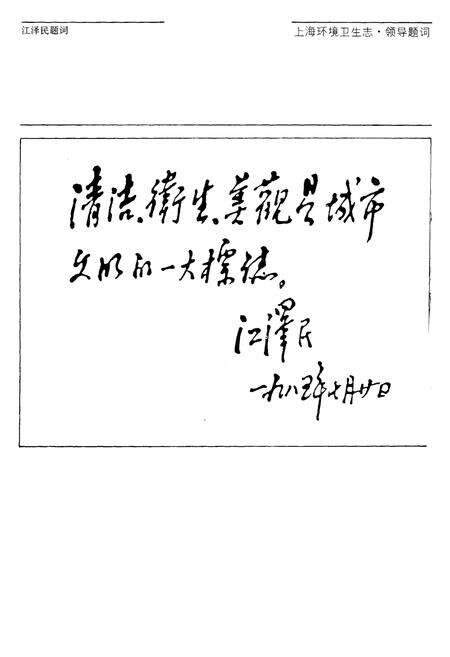 江泽民题词
上海环境卫生志·领导题词
清洁、衛生、美觀是城市
文明的一大標誌。
江澤民
一九八五年七月廿日